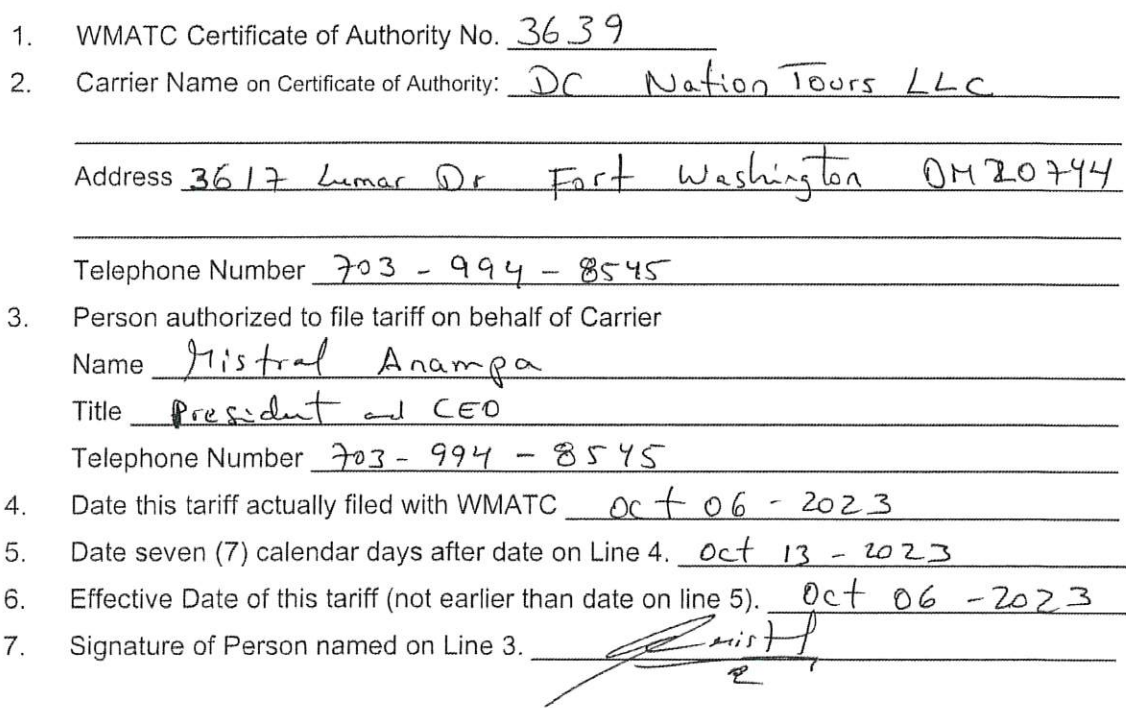 1. WMATC Certificate of Authority No. 3639
2. Carrier Name on Certificate of Authority: DC Nation Tours LLC
Address 3617 Lumar Dr Fort Washington DM 20744
Telephone Number 703 - 994 - 8545
3. Person authorized to file tariff on behalf of Carrier
Name Mistral Anampa
Title President and CEO
Telephone Number 703 - 994 - 8545
4. Date this tariff actually filed with WMATC Oct 06 - 2023
5. Date seven (7) calendar days after date on Line 4. Oct 13 - 2023
6. Effective Date of this tariff (not earlier than date on line 5). Oct 06 - 2023
7. Signature of Person named on Line 3.